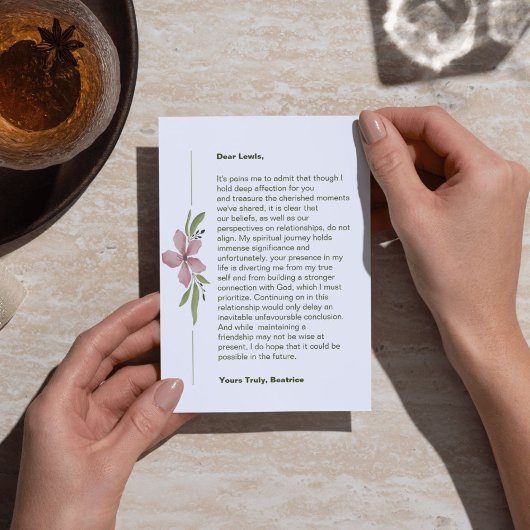 Dear Lewis,
It's pains me to admit that though I
hold deep affection for you
and treasure the cherished moments
we've shared, it is clear that
our beliefs, as well as our
perspectives on relationships, do not
align. My spiritual journey holds
immense significance and
unfortunately, your presence in my
life is diverting me from my true
self and from building a stronger
connection with God, which I must
prioritize. Continuing on in this
relationship would only delay an
inevitable unfavourable conclusion.
And while maintaining a
friendship may not be wise at
present, I do hope that it could be
possible in the future.
Yours Truly, Beatrice